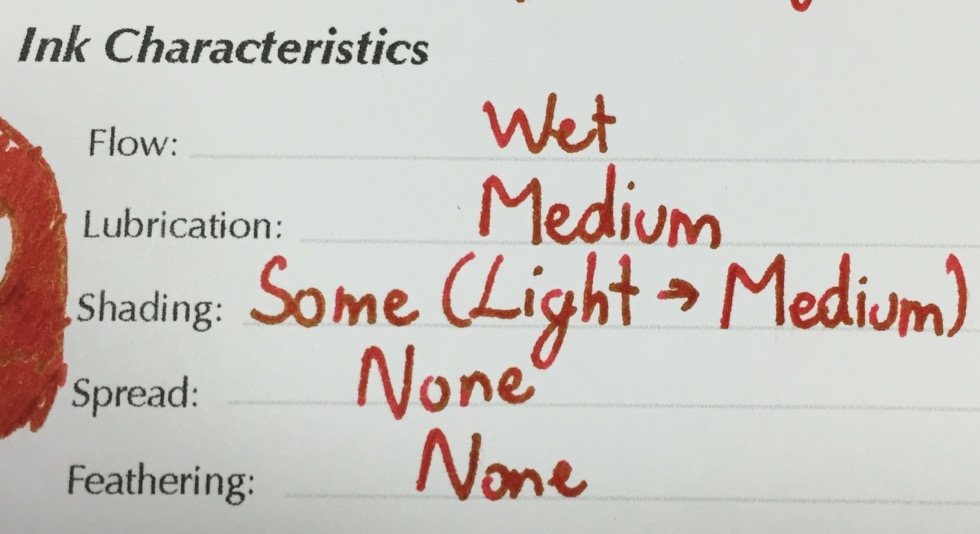 Ink Characteristics
Flow: Wet
Lubrication: Medium
Shading: Some (Light → Medium)
Spread: None
Feathering: None